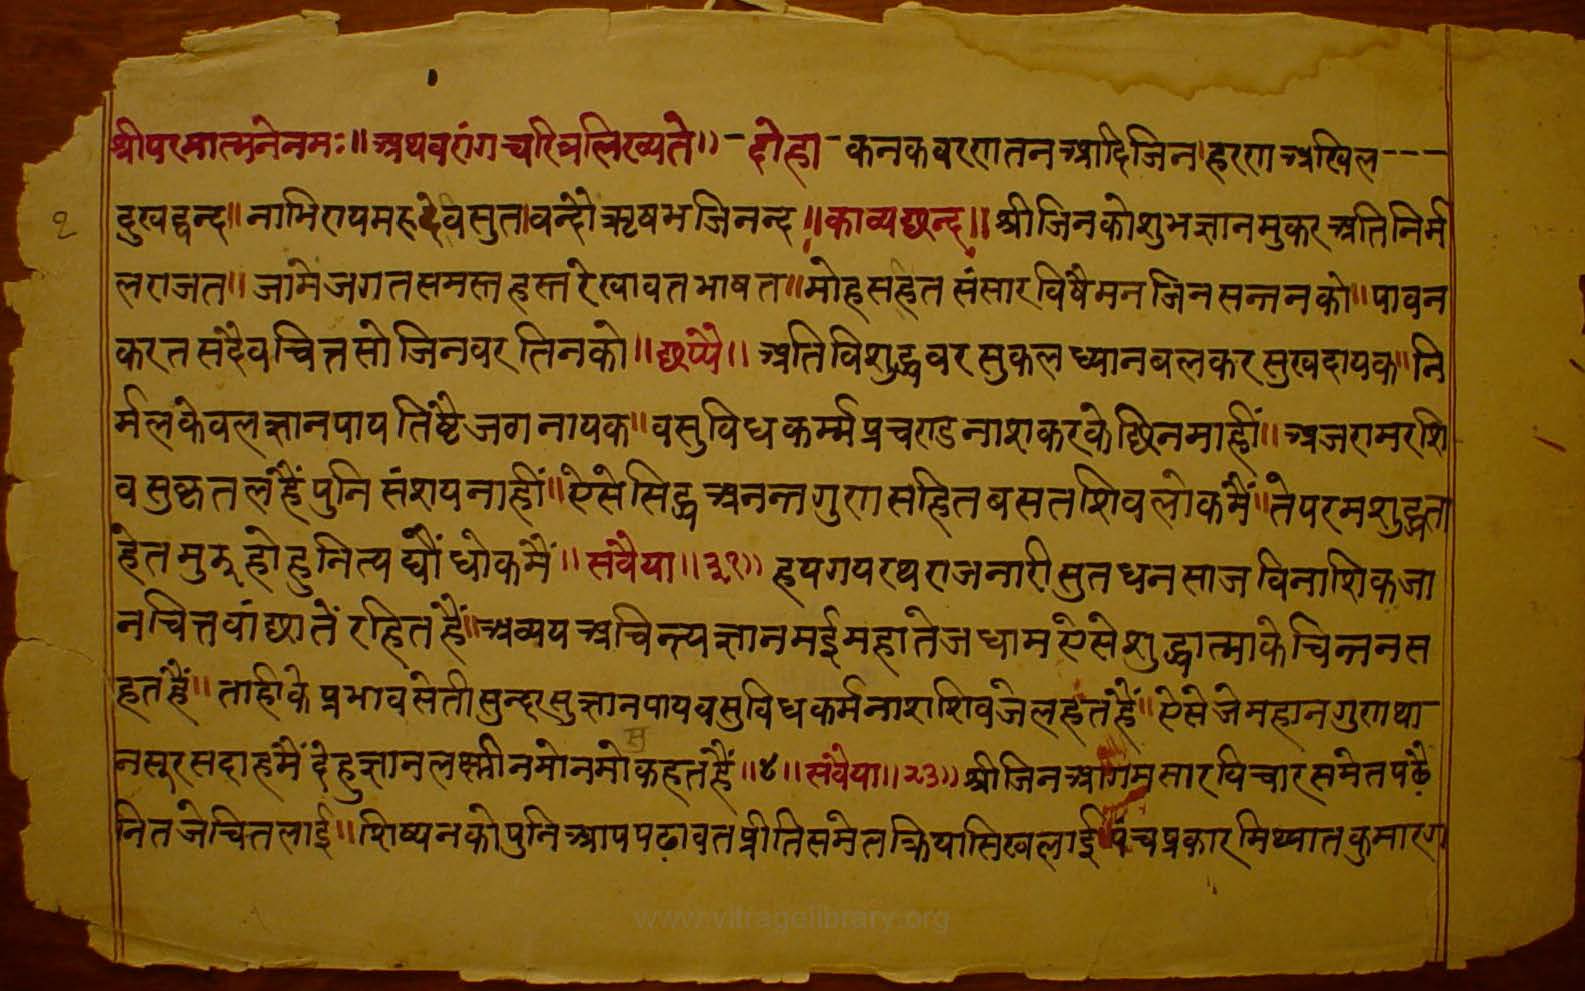 श्रीपरमात्मनेनमः॥ अथवरांगचरित्रलिख्यते॥ - दोहा - कनकवरणतनआदिजिन।हरणअखिल---
दुखद्वन्द॥ नाभिरायमरुदेवसुत।वन्दौऋषभजिनन्द॥काव्यछन्द॥ श्रीजिनकोशुभज्ञानमुकरअतिनिर्म
१
लराजत॥ जामेजगतसमस्तहस्तरेखावतभाषत॥मोहसहितसंसारविषैमनजिनसन्तनको॥पावन
करतसदैवचित्तसोजिनवरतिनको॥छप्पै॥ अतिविशुद्धवरसुकलध्यानवलकरसुखदायक॥नि
र्मलकेवलज्ञानपायतिष्टैजगनायक॥वसुविधकर्म्मप्रचण्डनाशकरकेछिनमाहीं॥ अजरामरशि
वसुकृतलहैंपुनिसंशयनाहीं॥ऐसेसिद्धअनन्तगुणसहितबसतशिवलोकमैं॥तेपरमशुद्धता
हेतमुझहोहुनित्यद्यौंधोकमैं॥सवैया॥३१॥ हयगयरथराजनारीसुतधनसाजविनाशिकजा
नचित्तवांछातेंरहितहैं॥अव्ययअचिन्त्यज्ञानमईमहातेजधामऐसेशुद्धात्माकेचिन्तनस
हतहैं॥ ताहीकेप्रभावसेतीसुन्दरसुज्ञानपायवसुविधकर्मनाशशिवजेलहंतहैं॥ऐसेजेमहानगुणथा
नसूरसदाहमैंदेहुज्ञानलक्ष्मीनमोनमोकहतहैं॥४॥सवैया॥२३॥श्रीजिनआगमसारविचारसमेतपढैं
नितजेचितलाई॥शिष्यनकोपुनिआपपढावतप्रीतिसमेतक्रियासिखलाई॥पंचप्रकारमिथ्यातकुमारग
www.vitragelibrary.org